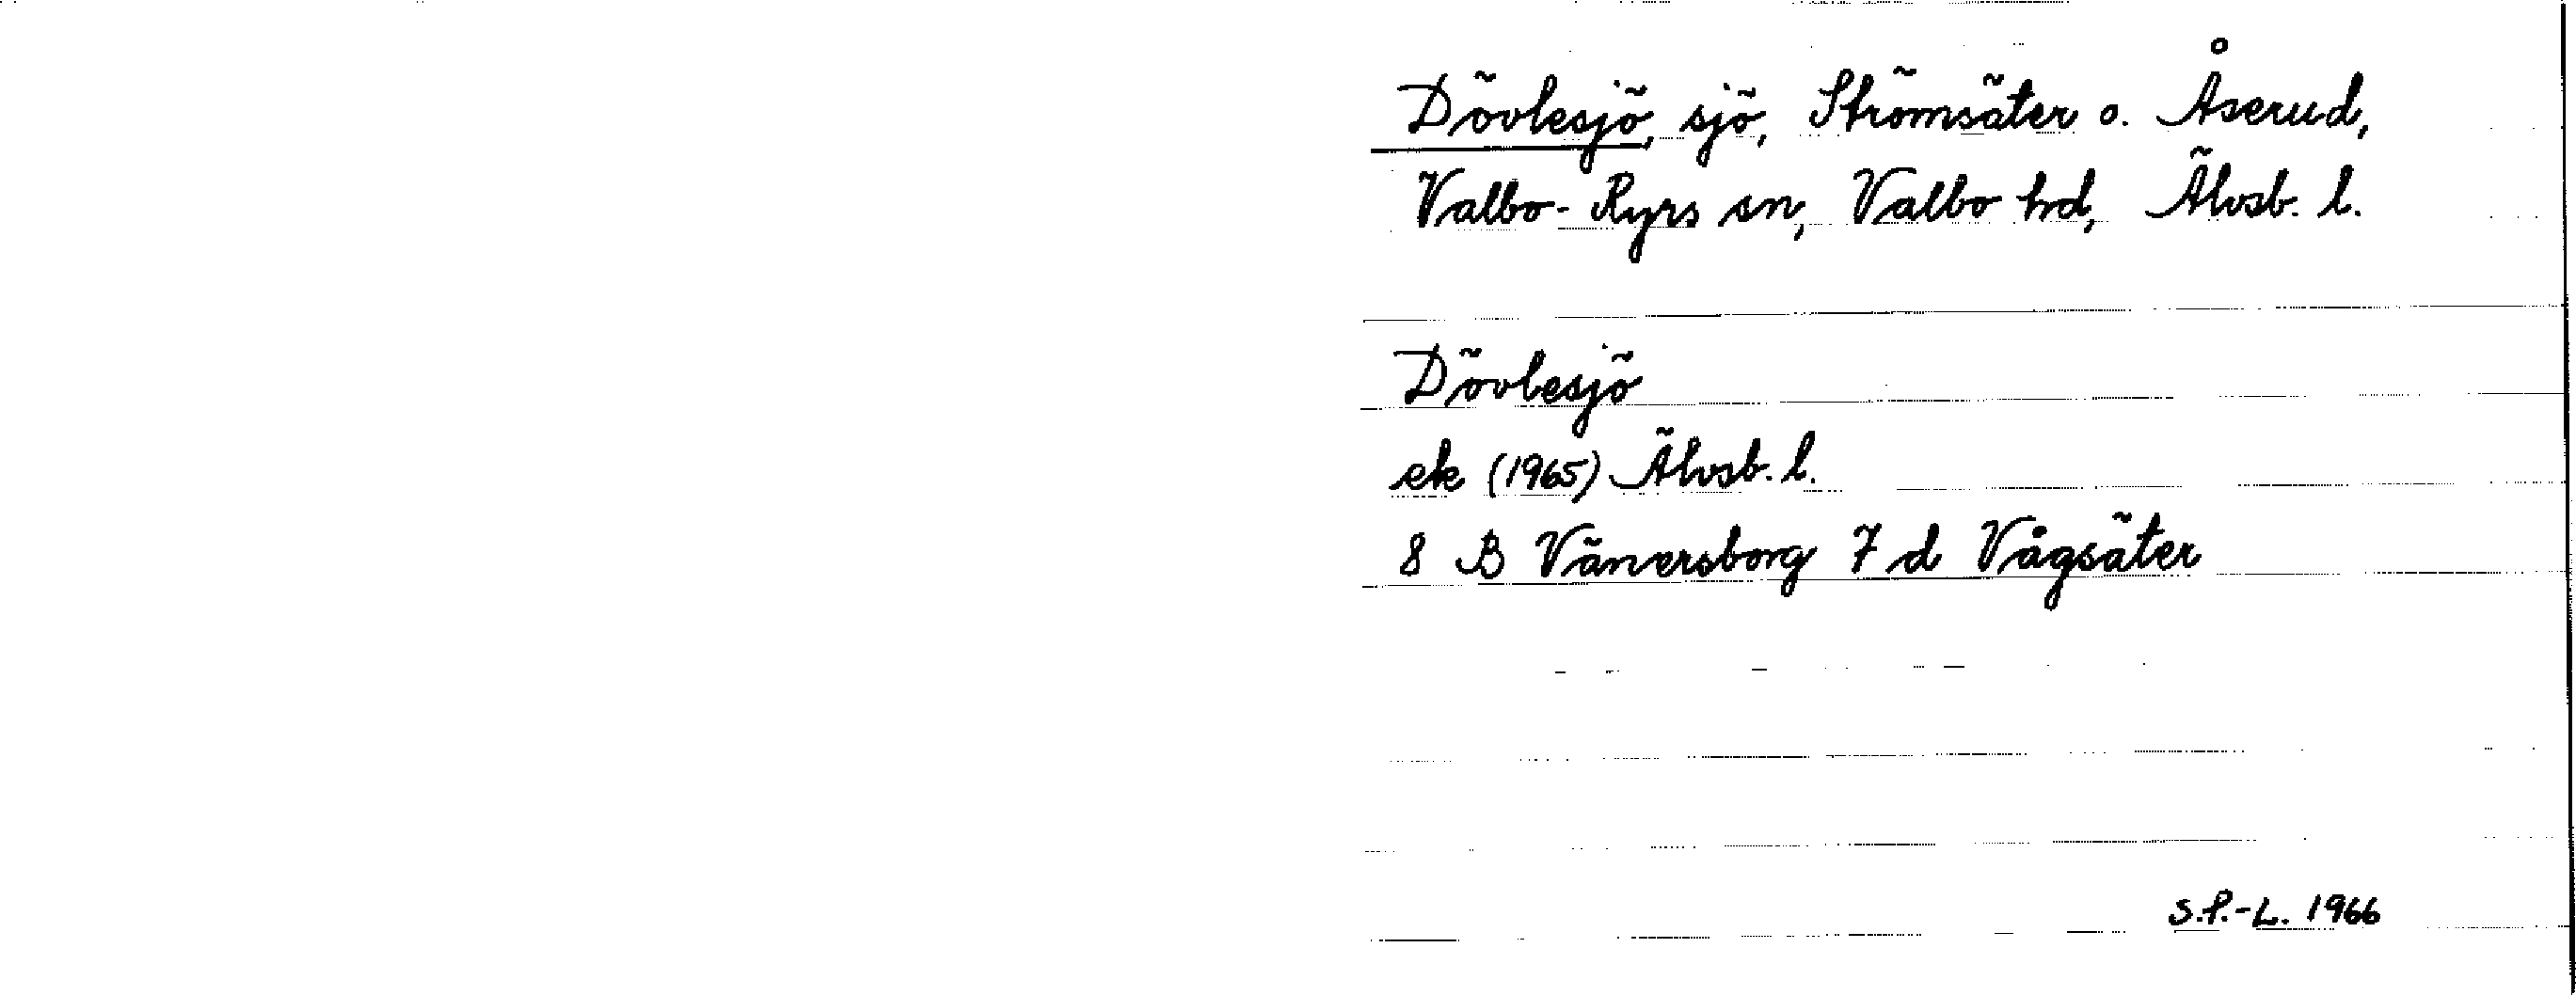 Dövlesjö, sjö, Strömsäter o. Åserud,
Valbo-Ryrs sn, Valbo hd, Älvsb. l.
Dövlesjö
ek (1965) Älvsb. l.
8 B Vänersborg 7 d Vågsäter
S.P.-L. 1966